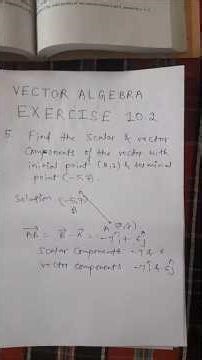 VECTOR ALGEBRA
EXERCISE 10.2
5 Find the scalar & vector
components of the vector with
initial point (2,1) & terminal
point (-5,7).
Solution (-5,7)
B
A (2,1)
AB = B - A = -7i + 6j
scalar components -7 & 6
vector components -7i & 6j